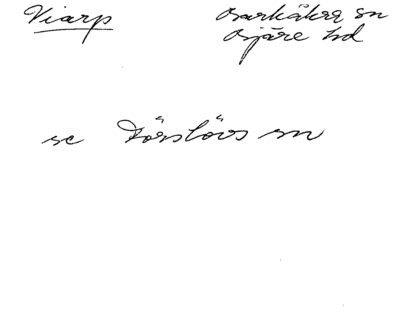 Viarp
Barkåkra sn
Bjäre hd
se Förslövs sn